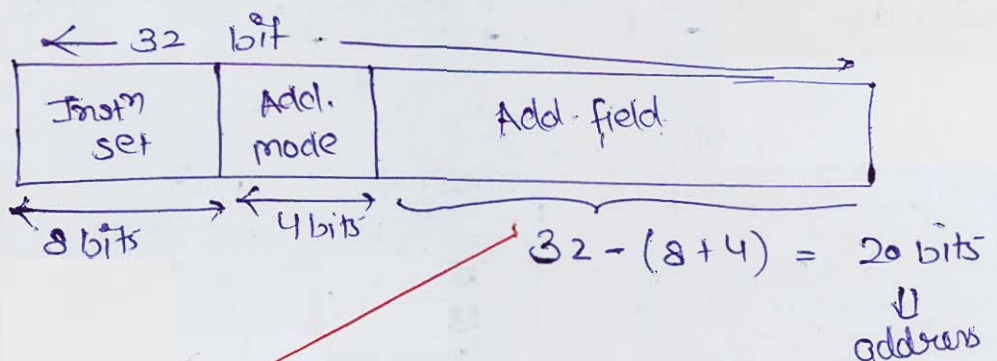 32 bit
Instn set
Add. mode
Add. field
8 bits
4 bits
32 - (8+4) = 20 bits
⇓
address